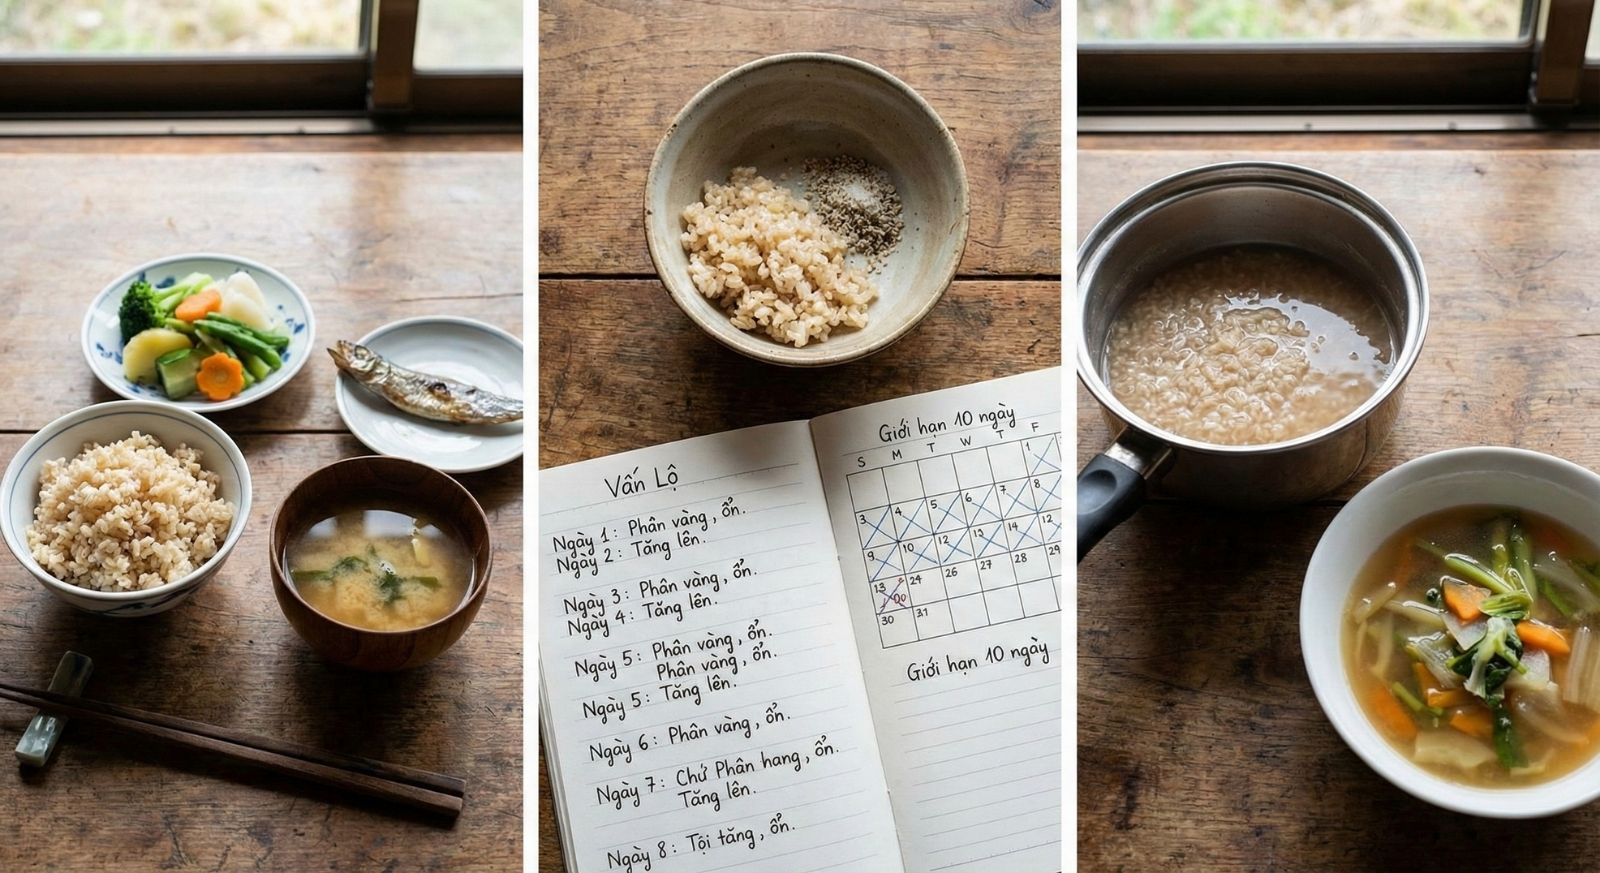 Vấn Lộ
Ngày 1: Phân vàng, ổn.
Ngày 2: Tăng lên.
Ngày 3: Phân vàng, ổn.
Ngày 4: Tăng lên.
Ngày 5: Phân vàng, ổn.
Phân vàng, ổn.
Ngày 5: Tăng lên.
Ngày 6: Phân vàng, ổn.
Ngày 7: Chứ Phân hang, ổn.
Tăng lên.
Ngày 8: Tội tăng, ổn.
Giới hạn 10 ngày
S M T W T F
1
3 4 5 6 7 8
9 10 12 13 14 12
13 24 26 27 28 29
30 31
Giới hạn 10 ngày